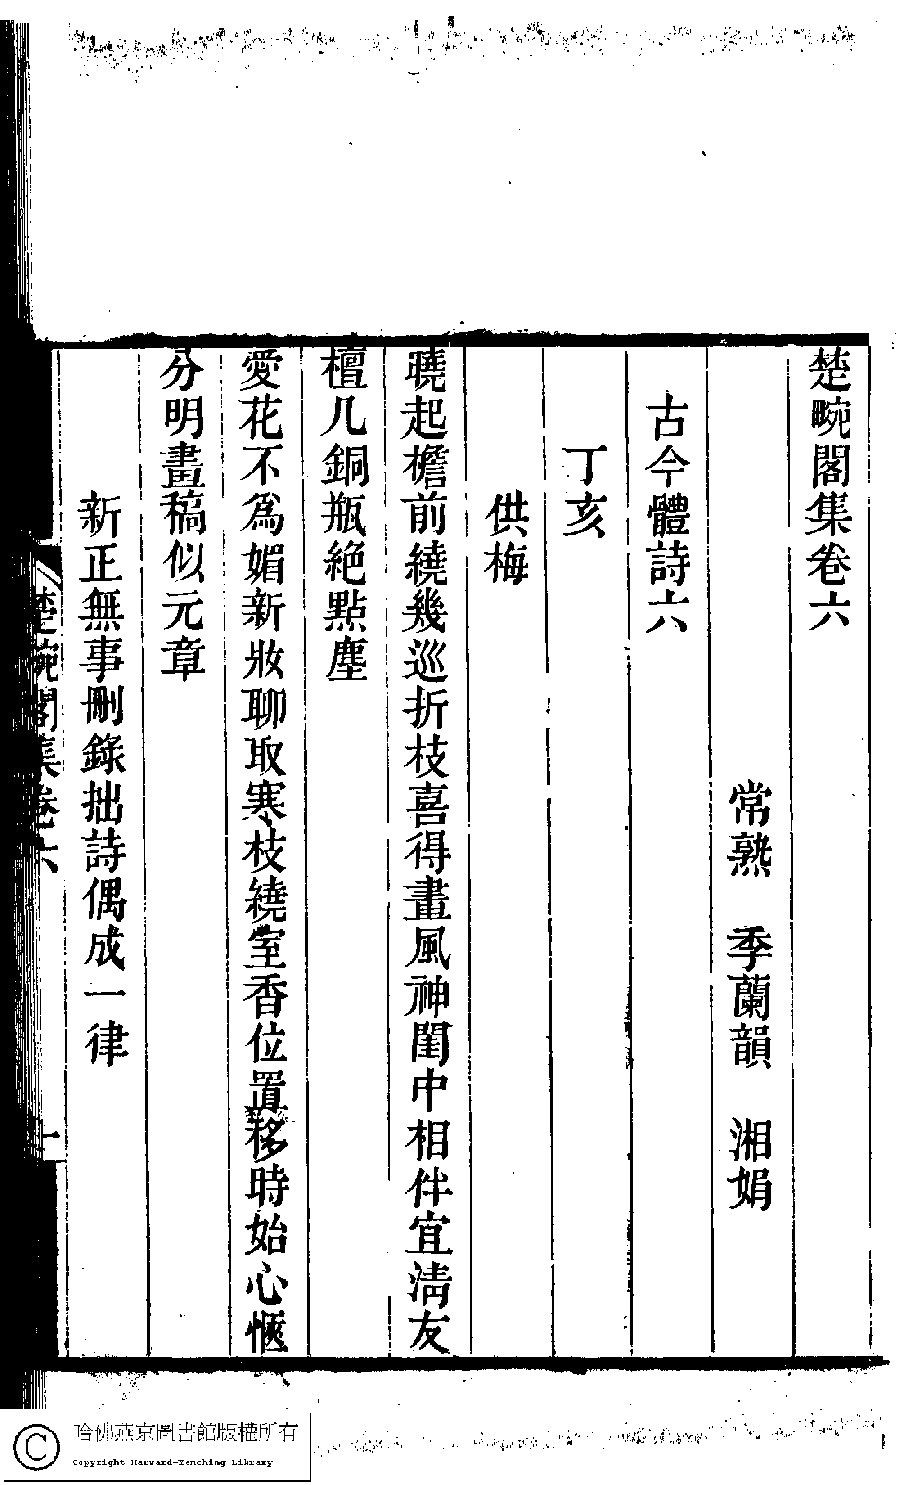 楚畹閣集卷六
常熟　季蘭韻　湘娟
古今體詩六
丁亥
供梅
曉起檐前繞幾巡折枝喜得畫風神閨中相伴宜淸友
檀几銅瓶絕點塵
愛花不爲媚新妝聊取寒枝繞室香位置移時始心愜
分明畫稿似元章
新正無事刪錄拙詩偶成一律
楚畹閣集卷六
一
哈佛燕京圖書館版權所有
Copyright Harvard-Yenching Library